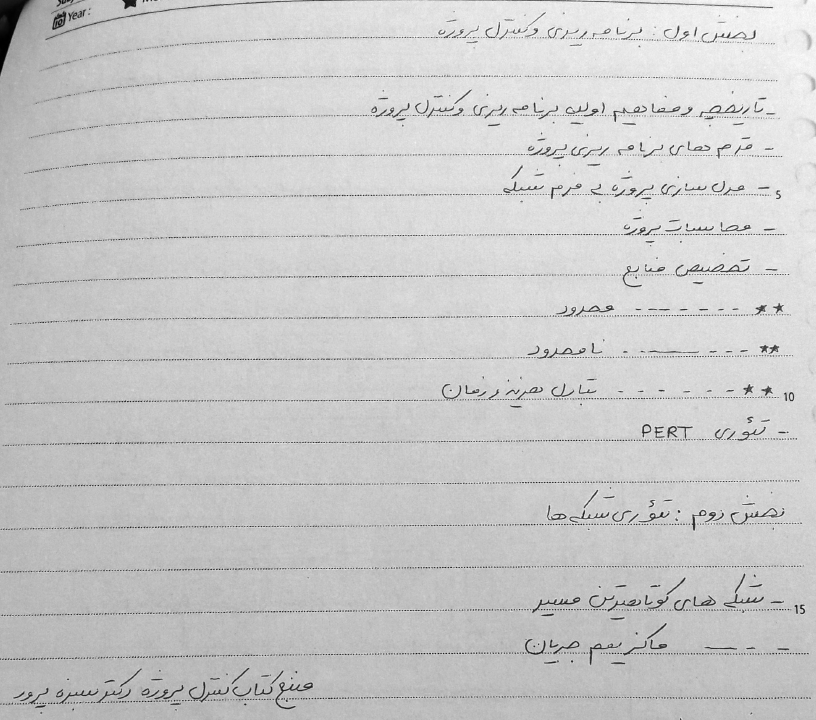 Year:
بخش اول : برنامه ریزی و کنترل پروژه
- تاریخچه و مفاهیم اولیه برنامه ریزی و کنترل پروژه
- قدم های برنامه ریزی پروژه
5 - مدل سازی پروژه به فرم شبکه
- محاسبات پروژه
- تخصیص منابع
★★ - - - - - - - محدود
★★ - - - —— - نامحدود
10 ★★ - - - - - - تبادل هزینه و زمان
- تئوری PERT
بخش دوم : تئوری شبکه ها
15 - شبکه های کوتاهترین مسیر
- - — ماکزیمم جریان
منبع کتاب کنترل پروژه دکتر سبزه پرور